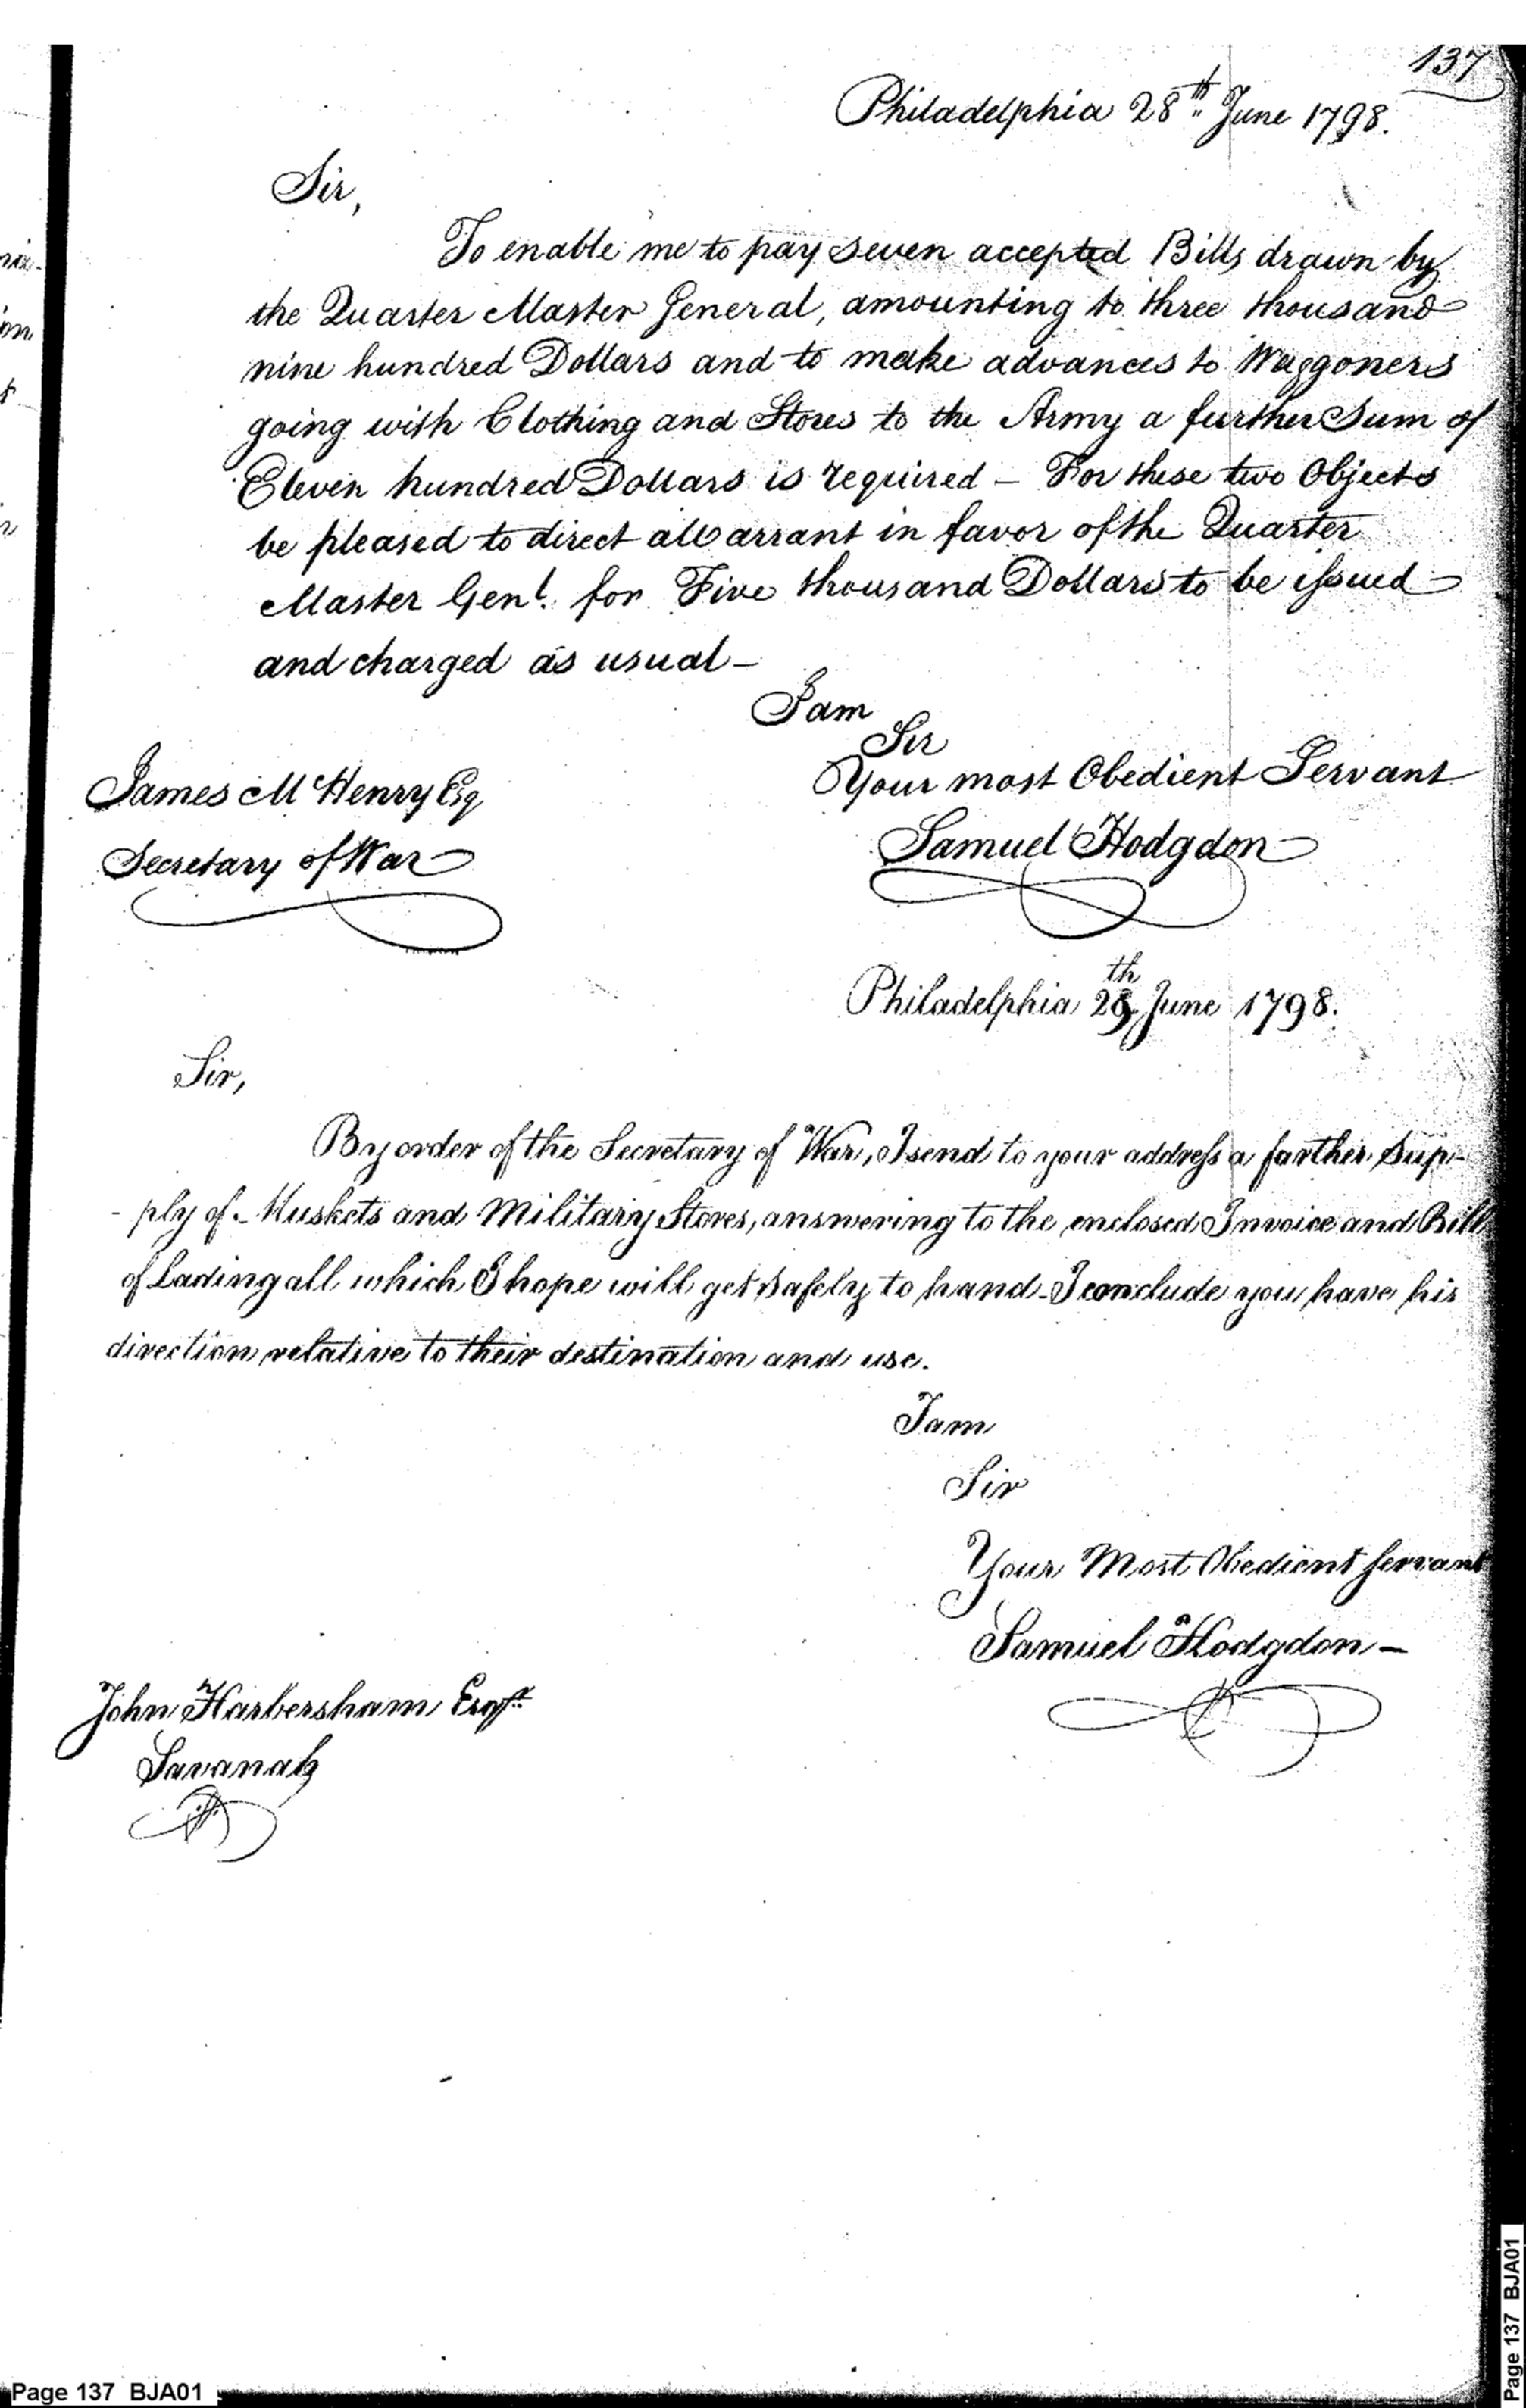 137
Philadelphia 28th June 1798.
Sir,
To enable me to pay seven accepted Bills drawn by
the Quarter Master General, amounting to three thousand
nine hundred Dollars and to make advances to Waggoners
going with Clothing and Stores to the Army a further Sum of
Eleven hundred Dollars is required – For these two Objects
be pleased to direct a Warrant in favor of the Quarter
Master Genl. for Five thousand Dollars to be issued
and charged as usual –
I am
Sir
Your most Obedient Servant
James McHenry Esq
Samuel Hodgdon
Secretary of War
Philadelphia th June 1798.
Sir,
By order of the Secretary of War, I send to your address a farther Sup-
- ply of Muskets and Military Stores, answering to the enclosed Invoice and Bill
of Lading all which I hope will get safely to hand – I conclude you have his
direction relative to their destination and use.
I am
Sir
Your Most Obedient Servant
Samuel Hodgdon –
John Harbersham Esqr.
Savanah
Page 137 BJA01
Page 137 BJA01